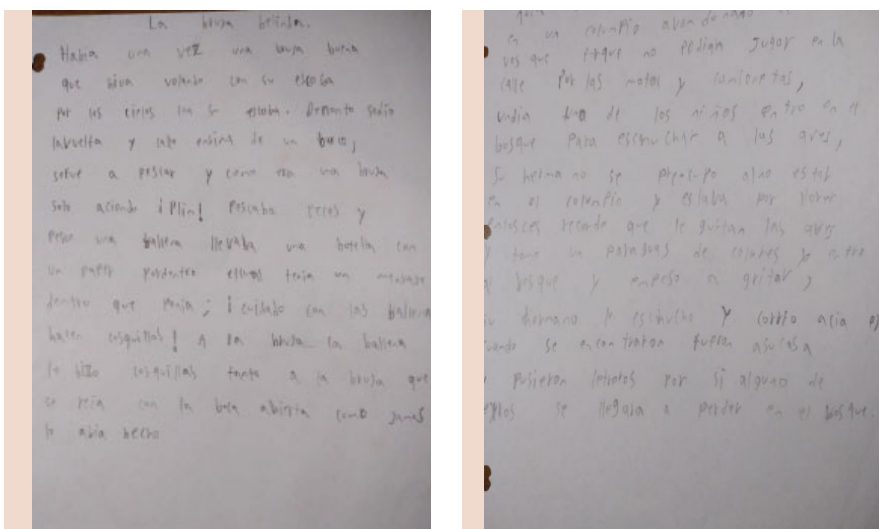 La bruja belinda.
Habia una vez una bruja buena
que biva volando con su escoba
por los cielos con su escoba. Depronto sedio
lavuelta y callo ensima de un barco,
selve a pescar y como era una bruja
solo aciendo ¡Plin! Pescaba peces y
Pesco una ballena llevaba una botella con
un papel pordentro tenia un mensaje
dentro que Ponia; ¡cuidado con las ballena
hacen cosquillas! A la bruja la ballena
le hizo cosquillas tanto a la bruja que
se reia con la boca abierta como jamas
lo abia hecho
en un colompio abandonado
ves que porque no pedian Jugar en la
calle Por las motos y camionetas,
undia uno de los niños entro en el
bosque Para escunchar a las aves,
Su hermano se preocupo alno estar
en el colompio y estaba por llorar
entosces recordo que le gustan las aves
y tomo un paraguas de colores y entro
al bosque y empeso a gritar,
su hermano lo escuncho y corrio acia el
cuando se encontraron fueron asucasa
y pusieron letreros por si alguno de
ellos se llegara a perder en el bosque.